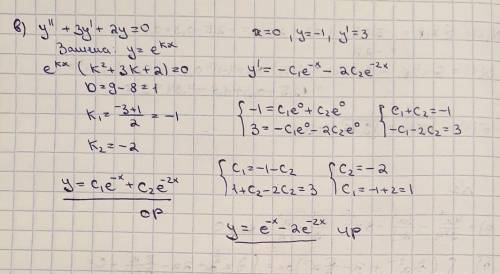 в) y" + 3y' + 2y = 0
Замена: y = e^{kx}
e^{kx} (k² + 3k + 2) = 0
D = 9 - 8 = 1
k₁ = \frac{-3+1}{2} = -1
k₂ = -2
y = C₁e^{-x} + C₂e^{-2x}
ОР
x = 0, y = -1, y' = 3
y' = -C₁e^{-x} - 2C₂e^{-2x}
{ -1 = C₁e⁰ + C₂e⁰ { C₁ + C₂ = -1
3 = -C₁e⁰ - 2C₂e⁰ -C₁ - 2C₂ = 3
{ C₁ = -1 - C₂ { C₂ = -2
1 + C₂ - 2C₂ = 3 C₁ = -1 + 2 = 1
y = e^{-x} - 2e^{-2x} ЧР